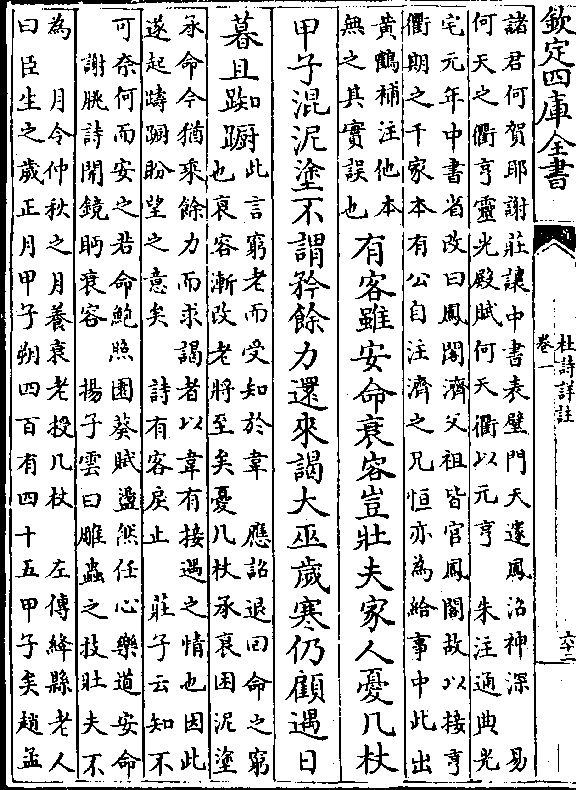 欽定四庫全書
杜詩詳註
卷一
六十二
諸君何賀耶謝莊讓中書表璧門天邃鳳沼神深 易
何天之衢亨靈光殿賦何天衢以元亨 朱注通典光
宅元年中書省改曰鳳閣濟父祖皆官鳳閣故以接亨
衢期之千家本有公自注濟之兄恒亦為給事中此出
黄鶴補注他本
無之其實誤也
有客雖安命衰容豈壯夫家人憂几杖
甲子混泥塗不謂矜餘力還來謁大巫歲寒仍顧遇日
暮且踟蹰
此言窮老而受知於韋 應詔退回命之窮
也衰容漸改老將至矣憂几杖承衰困泥塗
承命今猶乘餘力而求謁者以韋有接遇之情也因此
遂起躊蹰盼望之意矣 詩有客戾止 莊子云知不
可奈何而安之若命鮑照園葵賦盪然任心樂道安命
謝朓詩開鏡眄衰容 揚子雲曰雕蟲之技壯夫不
為 月令仲秋之月養衰老授几杖 左傳絳縣老人
曰臣生之歲正月甲子朔四百有四十五甲子矣趙孟